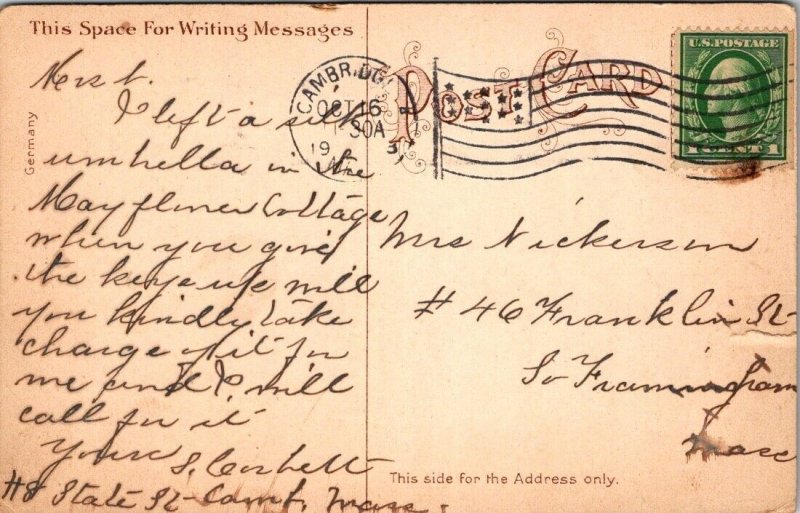 This Space For Writing Messages
Germany
POST CARD
U.S. POSTAGE
1 CENT 1
CAMBRIDGE
OCT 16
30A
19
I left a silk
umbrella in the
Mayflower Cottage
when you give
the keys up will
you kindly take
charge of it for
me and I will
call for it
Yours
S. Corbett
#8 State St - Camb. Mass.
Mrs Nickerson
# 46 Franklin St
So Framingham
Mass
This side for the Address only.